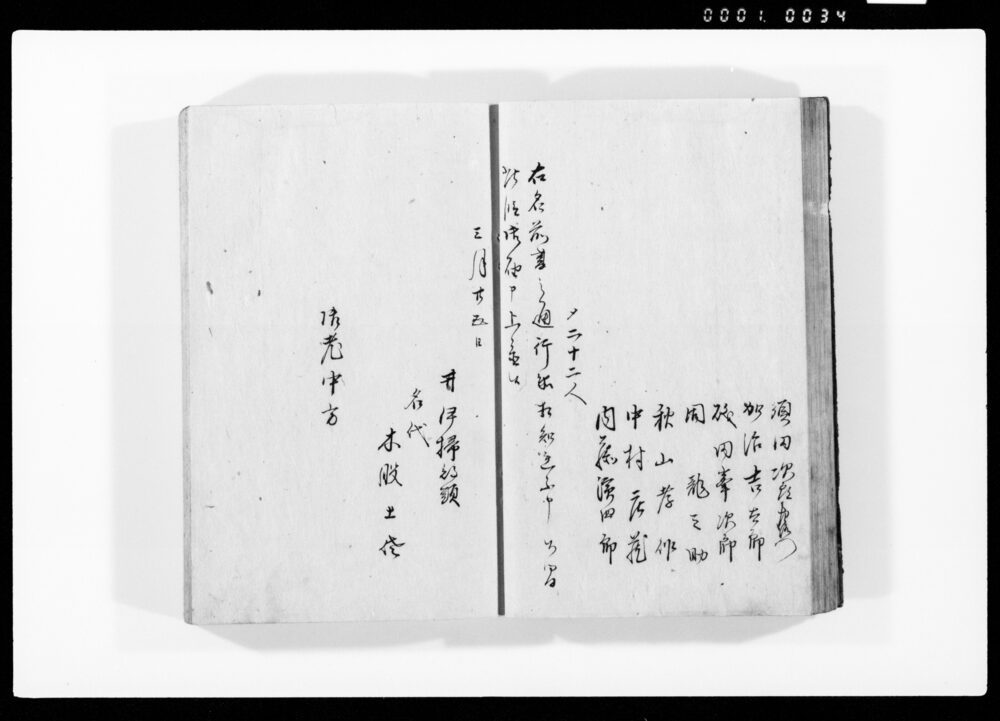 0001. 0034
須田次郎右衛門
加治吉太郎
磯田峯次郎
周龍之助
秋山孝作
中村庄蔵
内藤濱四郎
〆二十二人
右名前書之通行衛相知連不申候間
此段御届申上置候
三月廿五日
井伊掃部頭
名代
木股土佐
御老中方